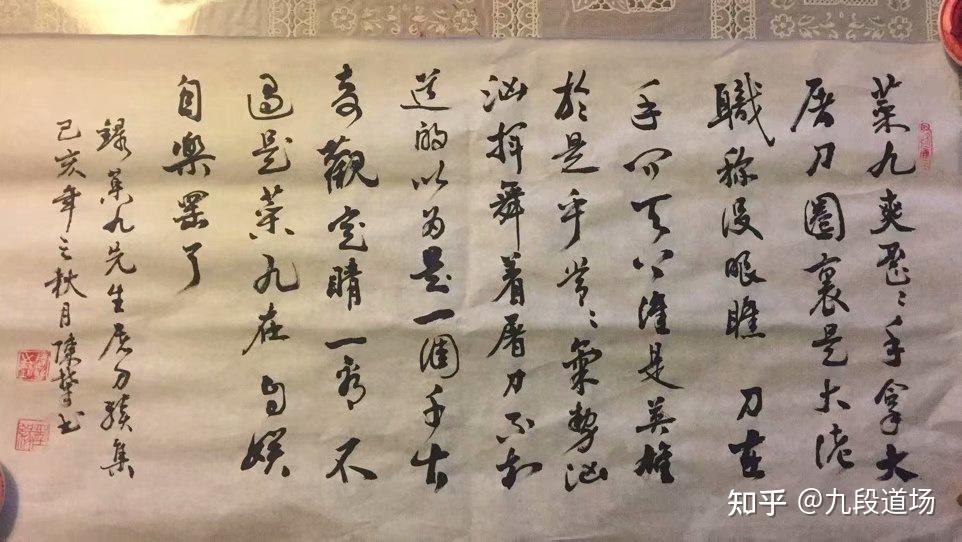 菜九爽歪〻手拿大
屠刀圈裏是大佬
職称没眼瞧 刀在
手问天下谁是英雄
於是乎常〻氣勢汹
汹揮舞着屠刀不知
道的以为是一個千古
奇觀定睛一看不
過是菜九在自娱
自樂罷了
録菜九先生屠刀續集
己亥年之秋月陳书
知乎 @九段道场